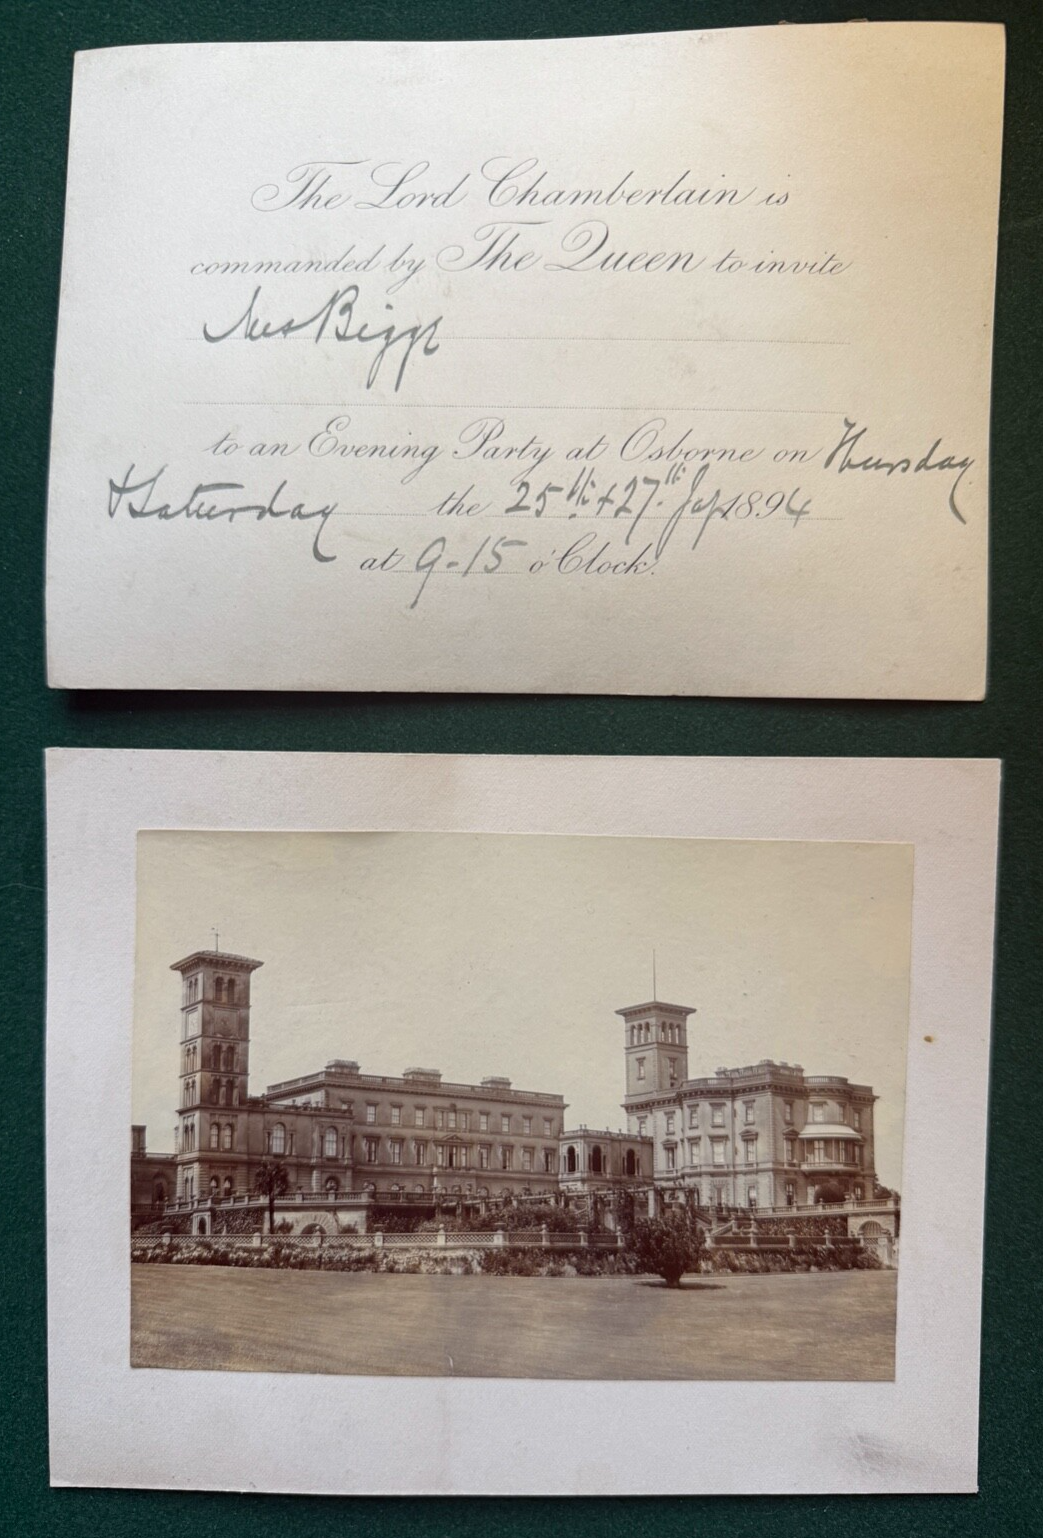 The Lord Chamberlain is
commanded by The Queen to invite
Mrs Biggs
to an Evening Party at Osborne on Thursday
& Saturday the 25th & 27th Jany 1894
at 9-15 o'Clock.